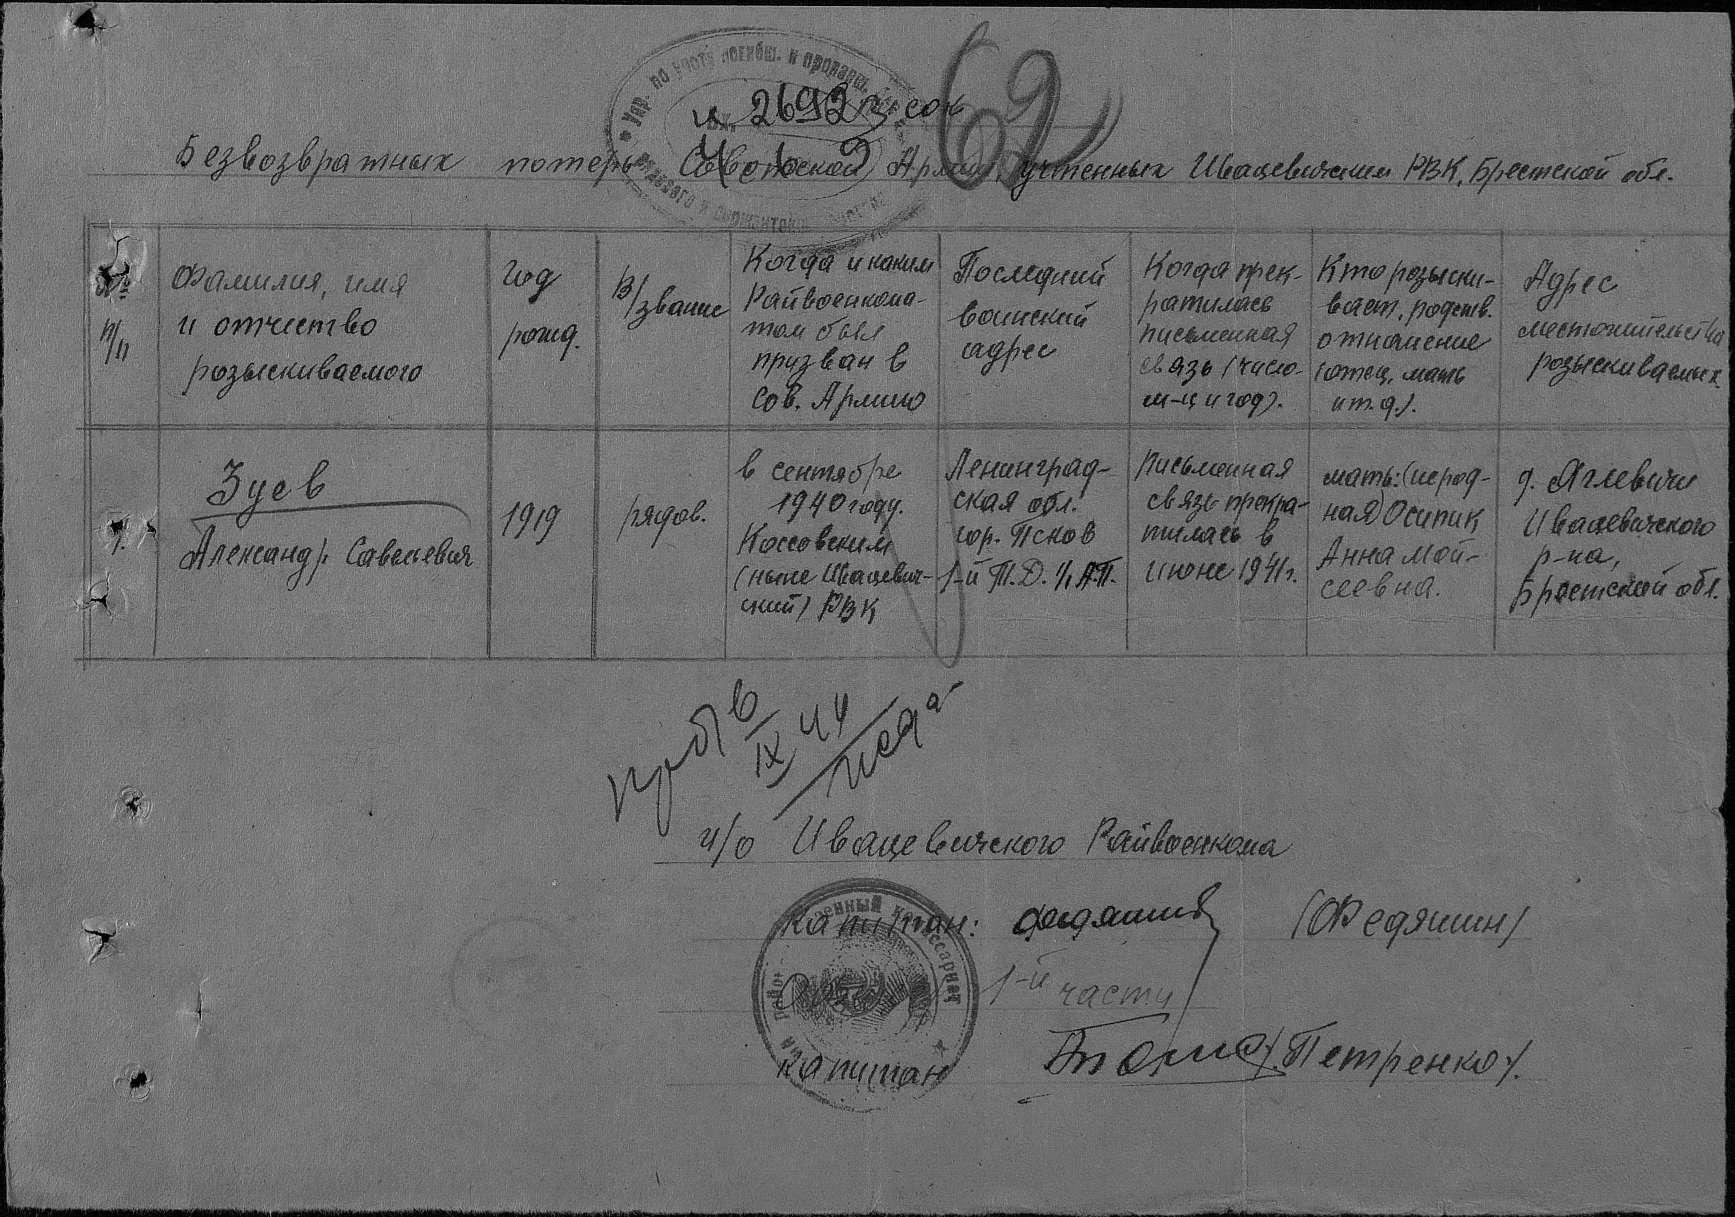 Упр. по учету погибш. и пропавш.
62
2692
Безвозвратных потерь Советской Армии, учтенных Ивацевичским РВК, Брестской обл.
№ п/п
Фамилия, имя
и отчество
розыскиваемого
Год
рожд.
В/звание
Когда и каким
Райвоенкома-
том был
призван в
Сов. Армию
Последний
воинский
адрес
Когда прек-
ратилась
письменная
связь (число
м-ц и год).
Кто розыски-
вает, родств.
отношение
(отец, мать
и т.д.).
Адрес
местожительства
розыскиваемых
1.
Зуев
Александр Савельевич
1919
рядов.
в сентябре
1940 году.
Коссовским
(ныне Ивацевич-
ский) РВК
Ленинград-
ская обл.
гор. Псков
1-й Т.Д. 1/ А.П.
Письменная
связь прекра-
тилась в
июне 1941 г.
мать: (нерод-
ная) Осипик
Анна Мой-
сеевна.
д. Яглевичи
Ивацевичского
р-на,
Брестской обл.
IX 44
и/о Ивацевичского Райвоенкома
Капитан: Федяшин (Федяшин)
1-й части
Капитан /Петренко/.